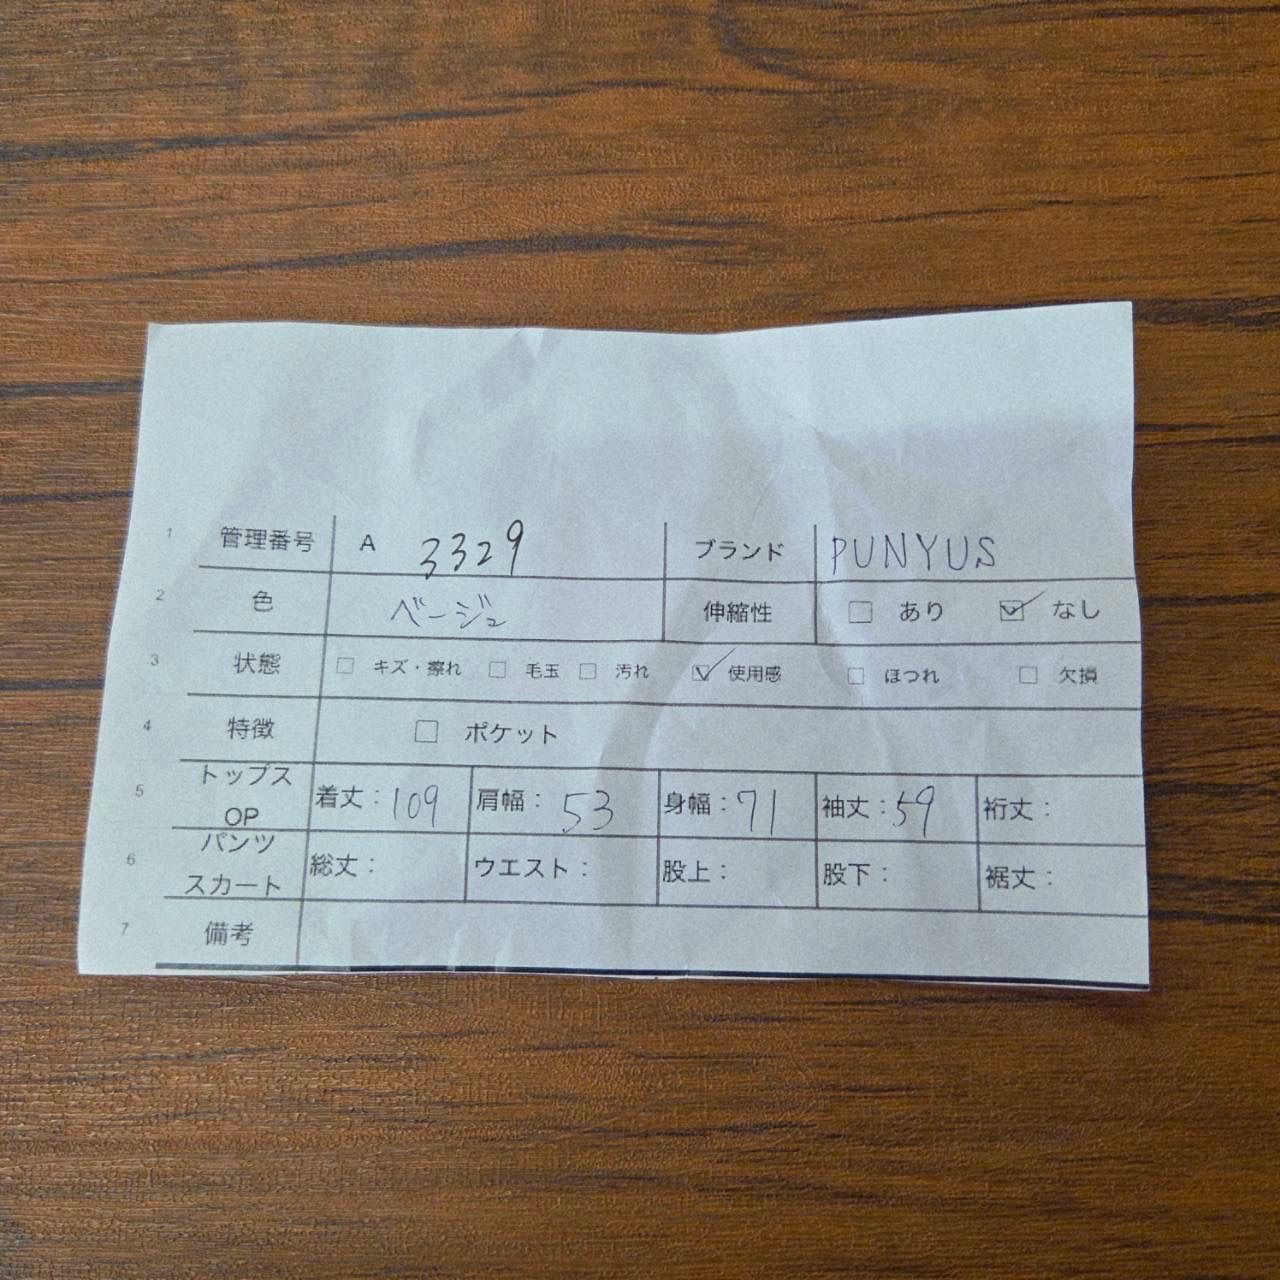 1 管理番号 A 3329 ブランド PUNYUS
2 色 ベージュ 伸縮性 □ あり ☑ なし
3 状態 □ キズ・擦れ □ 毛玉 □ 汚れ ☑ 使用感 □ ほつれ □ 欠損
4 特徴 □ ポケット
5 トップス OP 着丈：109 肩幅：53 身幅：71 袖丈：59 裄丈：
6 パンツ スカート 総丈： ウエスト： 股上： 股下： 裾丈：
7 備考